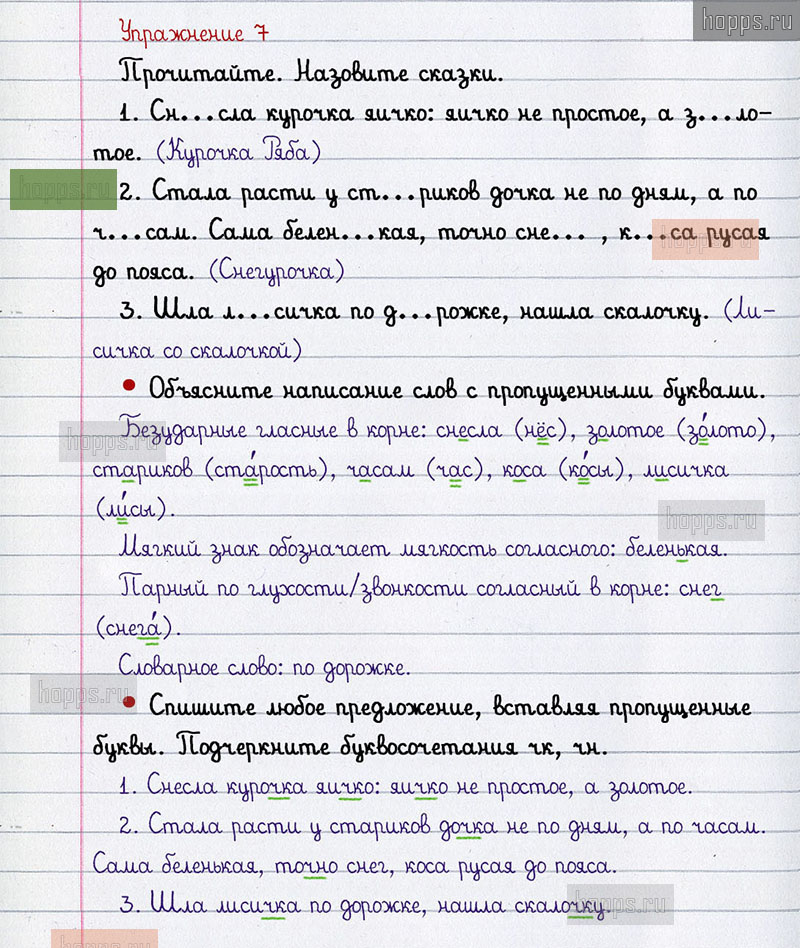 hopps.ru
Упражнение 7
Прочитайте. Назовите сказки.
1. Сн...сла курочка яичко: яичко не простое, а з...ло-
тое. (Курочка Ряба)
hopps.ru
2. Стала расти у ст...риков дочка не по дням, а по
ч...сам. Сама белен...кая, точно сне... , к...са русая
hopps.ru
до пояса. (Снегурочка)
3. Шла л...сичка по д...рожке, нашла скалочку. (Ли-
сичка со скалочкой)
• Объясните написание слов с пропущенными буквами.
Безударные гласные в корне: снесла (нёс), золотое (зо́лото),
hopps.ru
стариков (ста́рость), часам (час), коса (ко́сы), лисичка
(ли́сы).
hopps.ru
Мягкий знак обозначает мягкость согласного: беленькая.
Парный по глухости/звонкости согласный в корне: снег
(снега́).
Словарное слово: по дорожке.
hopps.ru
• Спишите любое предложение, вставляя пропущенные
буквы. Подчеркните буквосочетания чк, чн.
1. Снесла курочка яичко: яичко не простое, а золотое.
2. Стала расти у стариков дочка не по дням, а по часам.
Сама беленькая, точно снег, коса русая до пояса.
3. Шла лисичка по дорожке, нашла скалочку.
hopps.ru